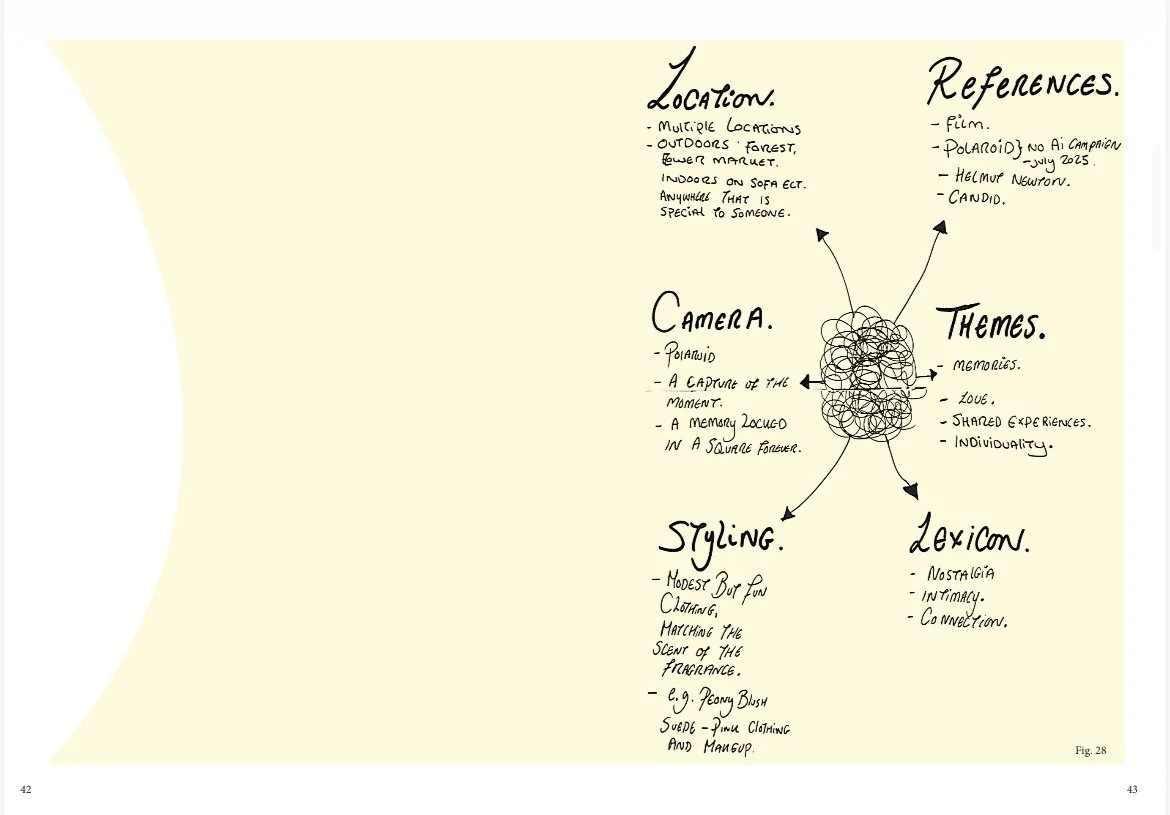 LOCATION.
- MULTIPLE LOCATIONS
- OUTDOORS FOREST,
FLOWER MARKET.
INDOORS ON SOFA ECT.
ANYWHERE THAT IS
SPECIAL TO SOMEONE.
REFERENCES.
- FILM.
- POLAROID} NO Ai CAMPAIGN
- JULY 2025.
- HELMUT NEWTON.
- CANDID.
CAMERA.
- POLAROID
- A CAPTURE OF THE
MOMENT.
- A MEMORY LOCKED
IN A SQUARE FOREVER.
THEMES.
- MEMORIES.
- LOVE.
- SHARED EXPERIENCES.
- INDIVIDUALITY.
STYLING.
- MODEST BUT FUN
CLOTHING,
MATCHING THE
SCENT OF THE
FRAGRANCE.
- e.g. PEONY BLUSH
SUEDE - PINK CLOTHING
AND MAKEUP.
LEXICON.
- NOSTALGIA
- INTIMACY.
- CONNECTION.
Fig. 28
42
43